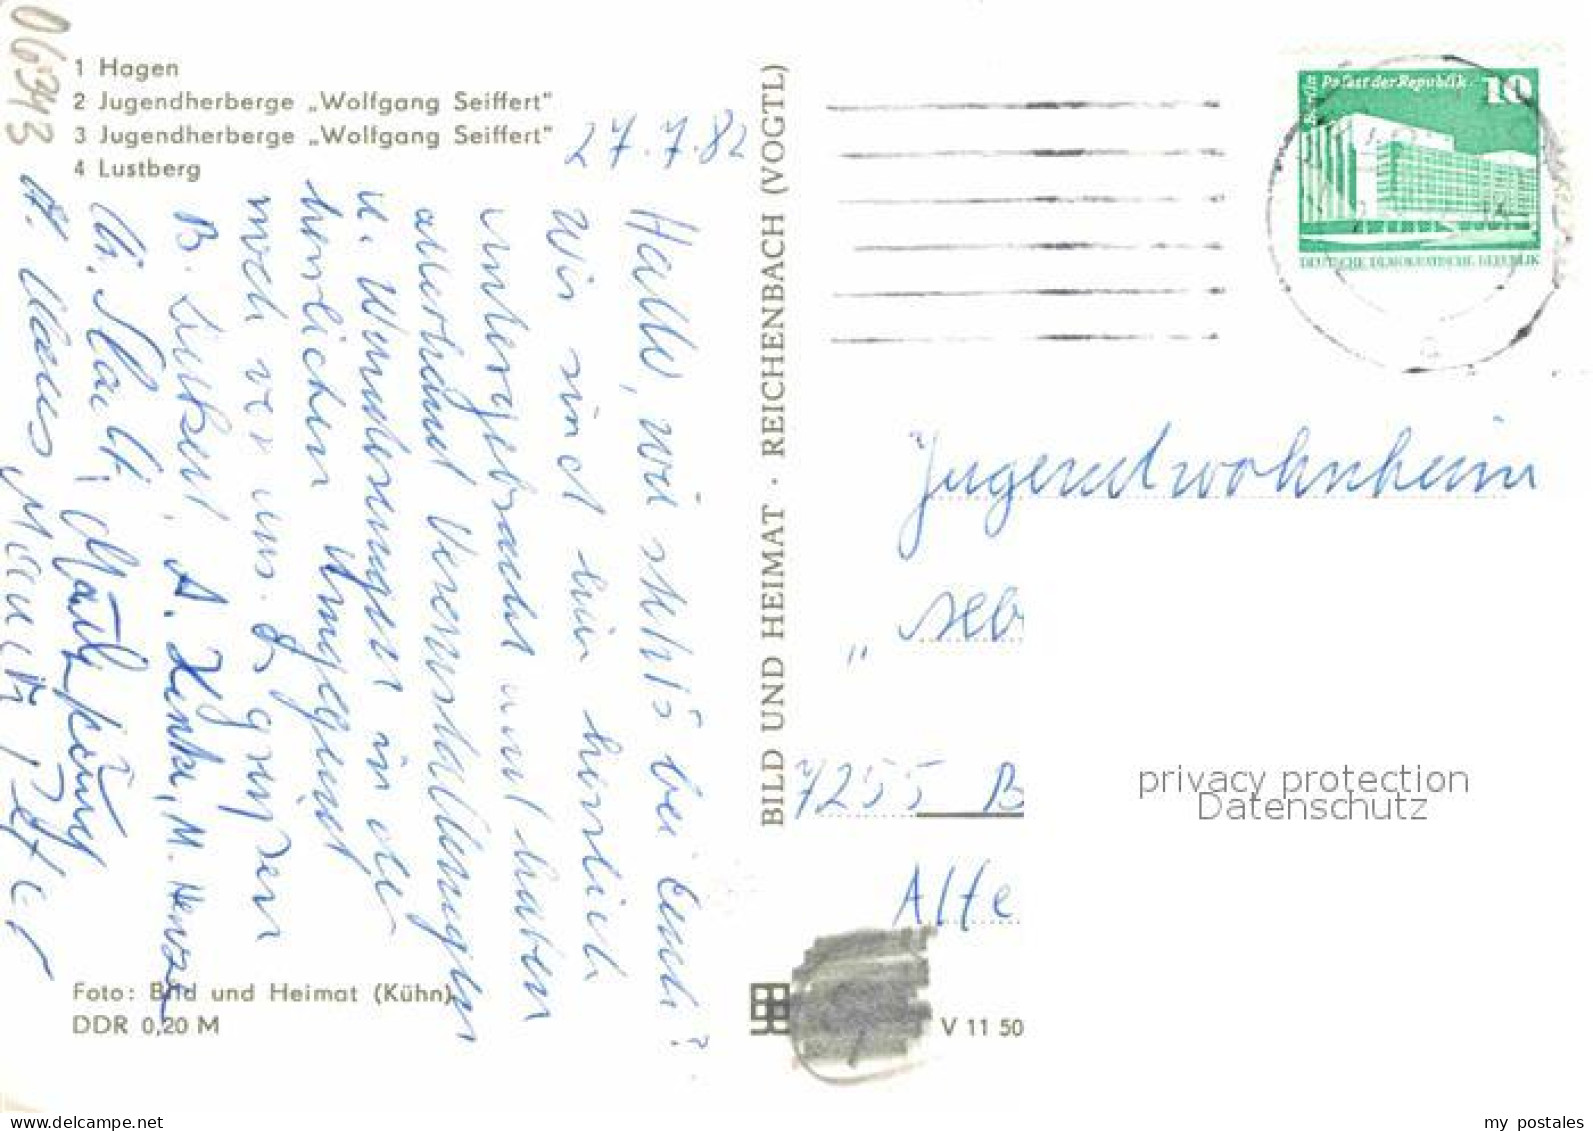 06343
1 Hagen
2 Jugendherberge „Wolfgang Seiffert"
3 Jugendherberge „Wolfgang Seiffert"
4 Lustberg
27.7.82
Hallo, wie steht's bei Euch?
Wir sind hier herrlich
untergebracht und haben
allerhand Veranstaltungen
u. Wanderungen in der
herrlichen Umgegend
noch vor uns. Es grüßen
B. A. M.
König
Foto: Bild und Heimat (Kühn)
DDR 0,20 M
BILD UND HEIMAT · REICHENBACH (VOGTL)
Berlin Palast der Republik 10
DEUTSCHE DEMOKRATISCHE REPUBLIK
Jugendwohnheim
„ Seb
7255 B
Alte
V 11 50
privacy protection
Datenschutz
my postales
www.delcampe.net